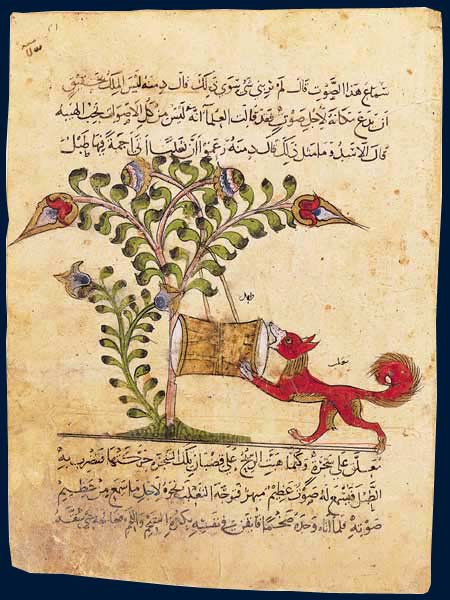 سماع هذا الصوت قال لم يربني شي سوى ذلك قال دمنه ليس الملك بحقيق
ان يدع مكانه لاجل صوت فقد قالت العلما انه ليس من كل الاصوات تجب الهيبه
قال الاسد وما مثل ذلك قال دمنه زعموا ان ثعلبا اتى اجمة فيها طبل
طبل
ثعلب
معلق على شجرة وكلما هبت الريح على قضبان تلك الشجرة حركتها فتضرب به
الطبل فيسمع له صوت عظيم فتوجه الثعلب نحوه لاجل ما سمع من عظيم
صوته فلما اتاه وجده ضخما فايقن في نفسه بكثرة الشحم واللحم فعالجه حتى شقه